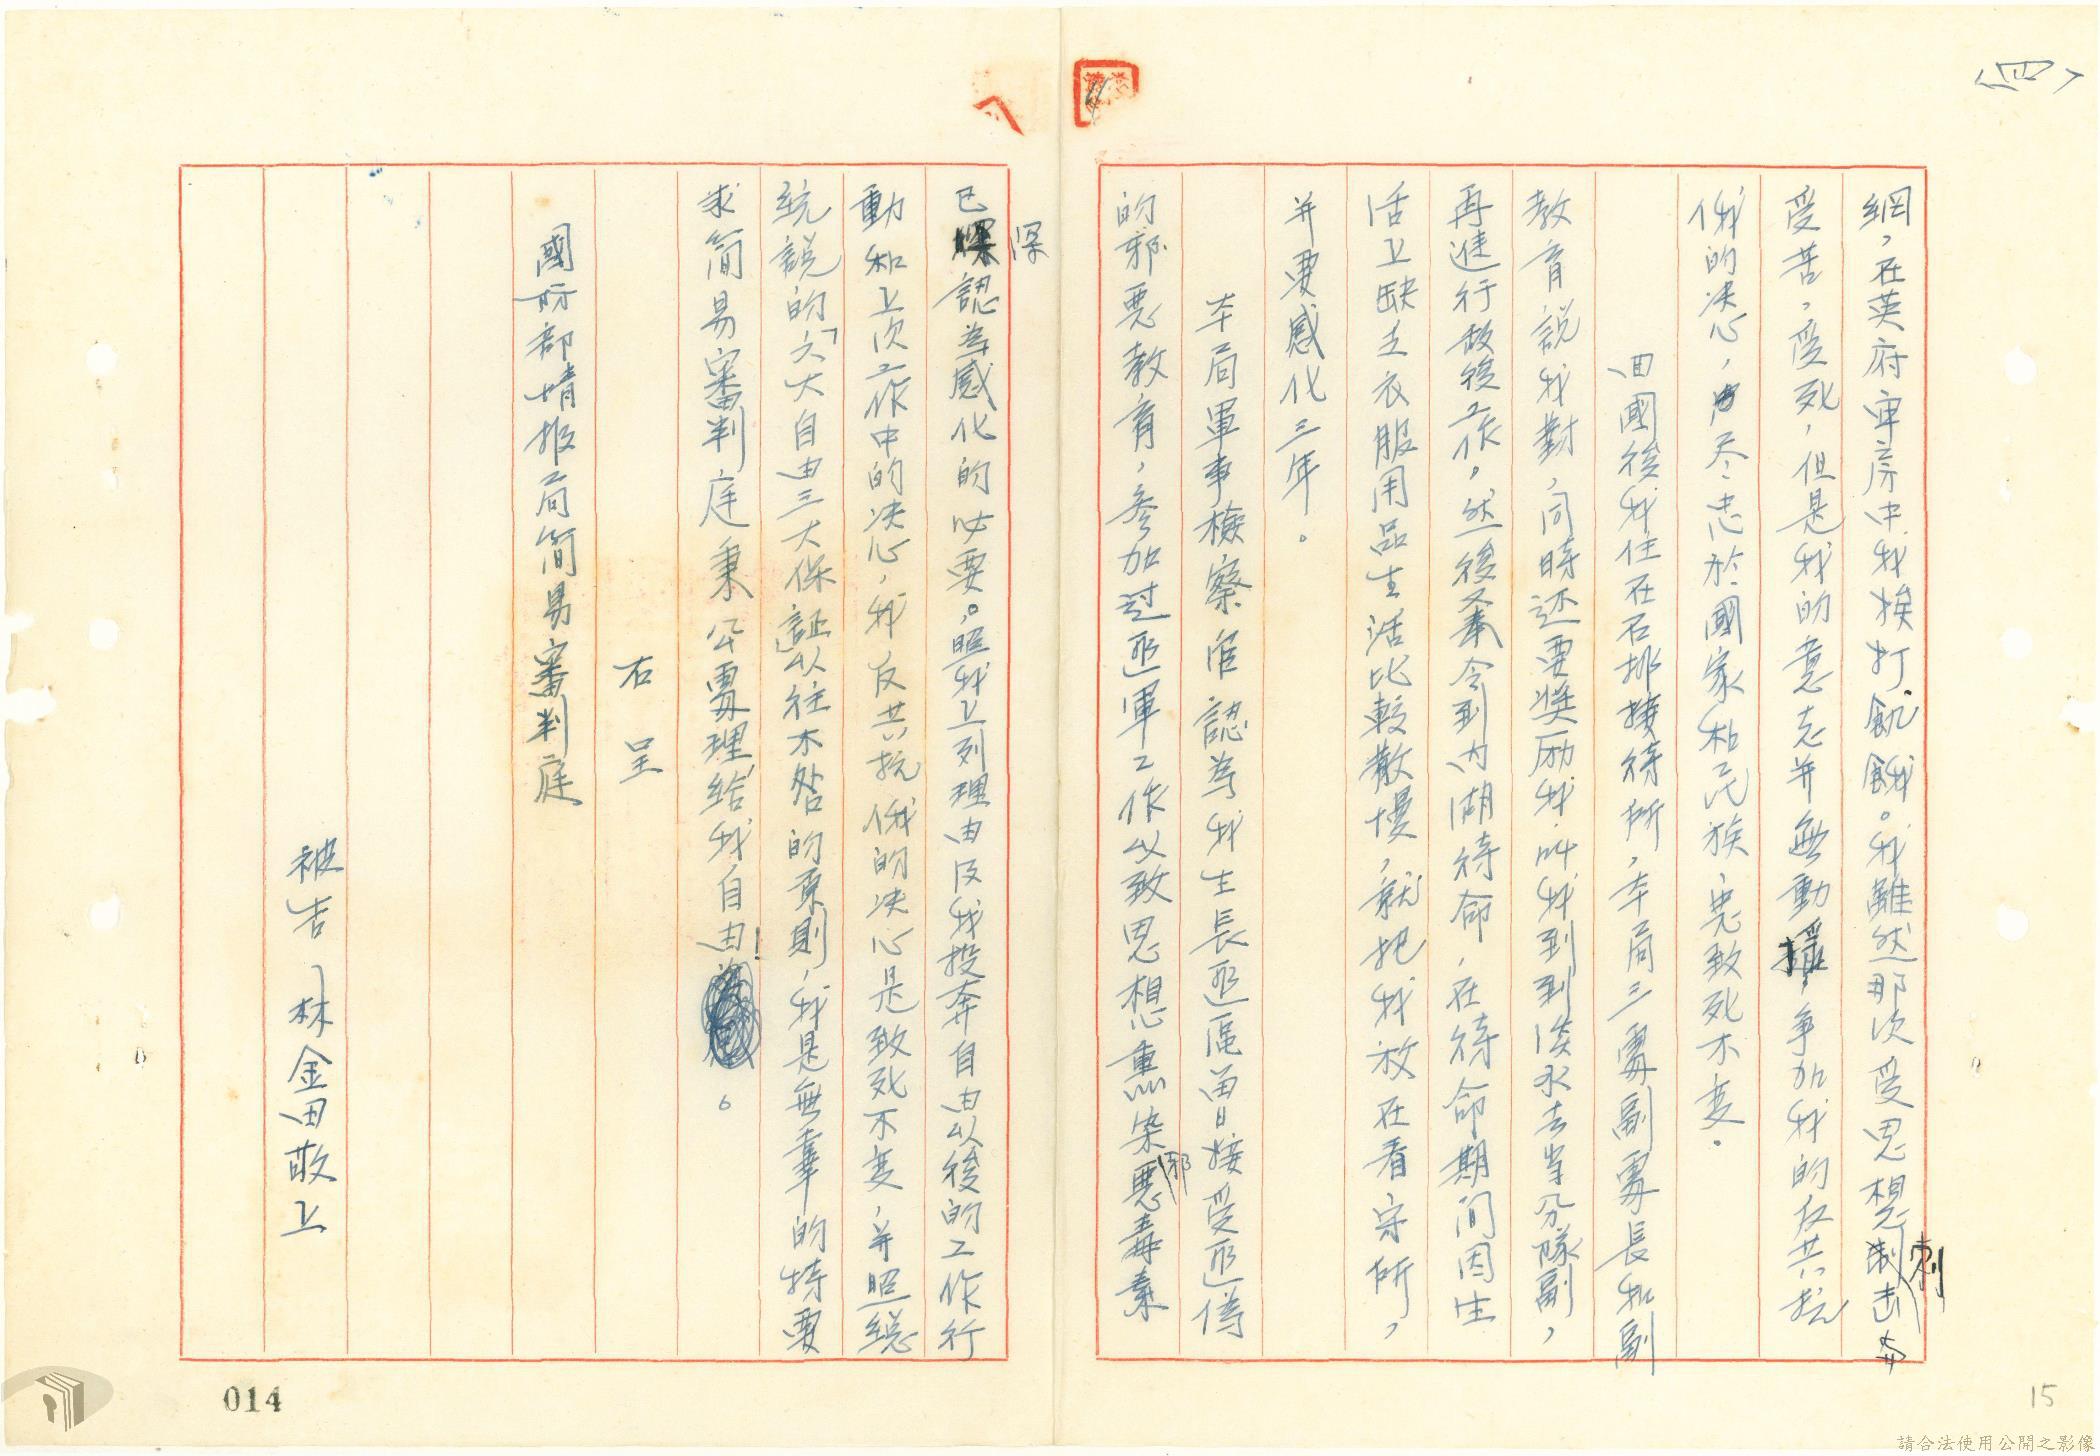 〈四〉
網，在英府牢房中我挨打飢餓。我雖然那次受思想刺击
受苦，受死，但是我的意志并無動搖，争加我的反共抗
俄的决心，尽忠於國家和民族，忠致死不变。
回國後我住在石排接待所，本局三處副處長和副
教育說我對，同時还要獎励我，叫我到到淡水去当分隊副，
再進行敌後工作，然後又奉令到内湖待命，在待命期间因生
活上缺乏衣服用品生活比較散慢，就把我放在看守所，
并要感化三年。
本局軍事檢察官認為我生長匪區曾日接受匪偽
的邪惡教育，参加过匪軍工作以致思想熏染邪惡毒素
已深認為感化的必要。照我上列理由及我投奔自由以後的工作行
動和上次工作中的决心，我反共抗俄的决心是致死不变，并照総
統説的「六大自由三大保証」以往不咎的原則，我是無辜的特要
求简易審判庭秉公處理給我自由！。
右呈
國防部情报局简易審判庭
被告 林金田敬上
014
15
請合法使用公開之影像